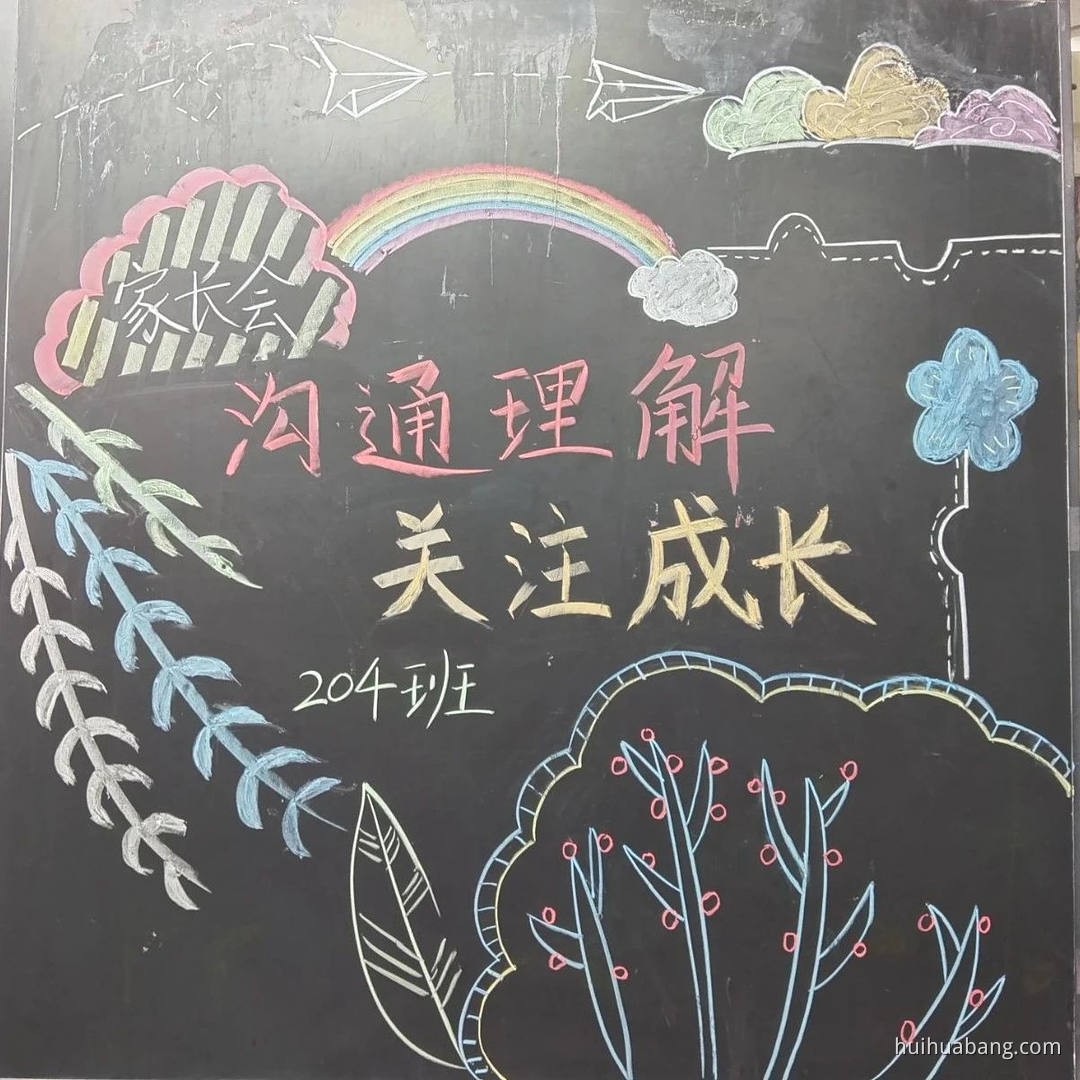 家长会
沟通理解
关注成长
204班
huihuabang.com